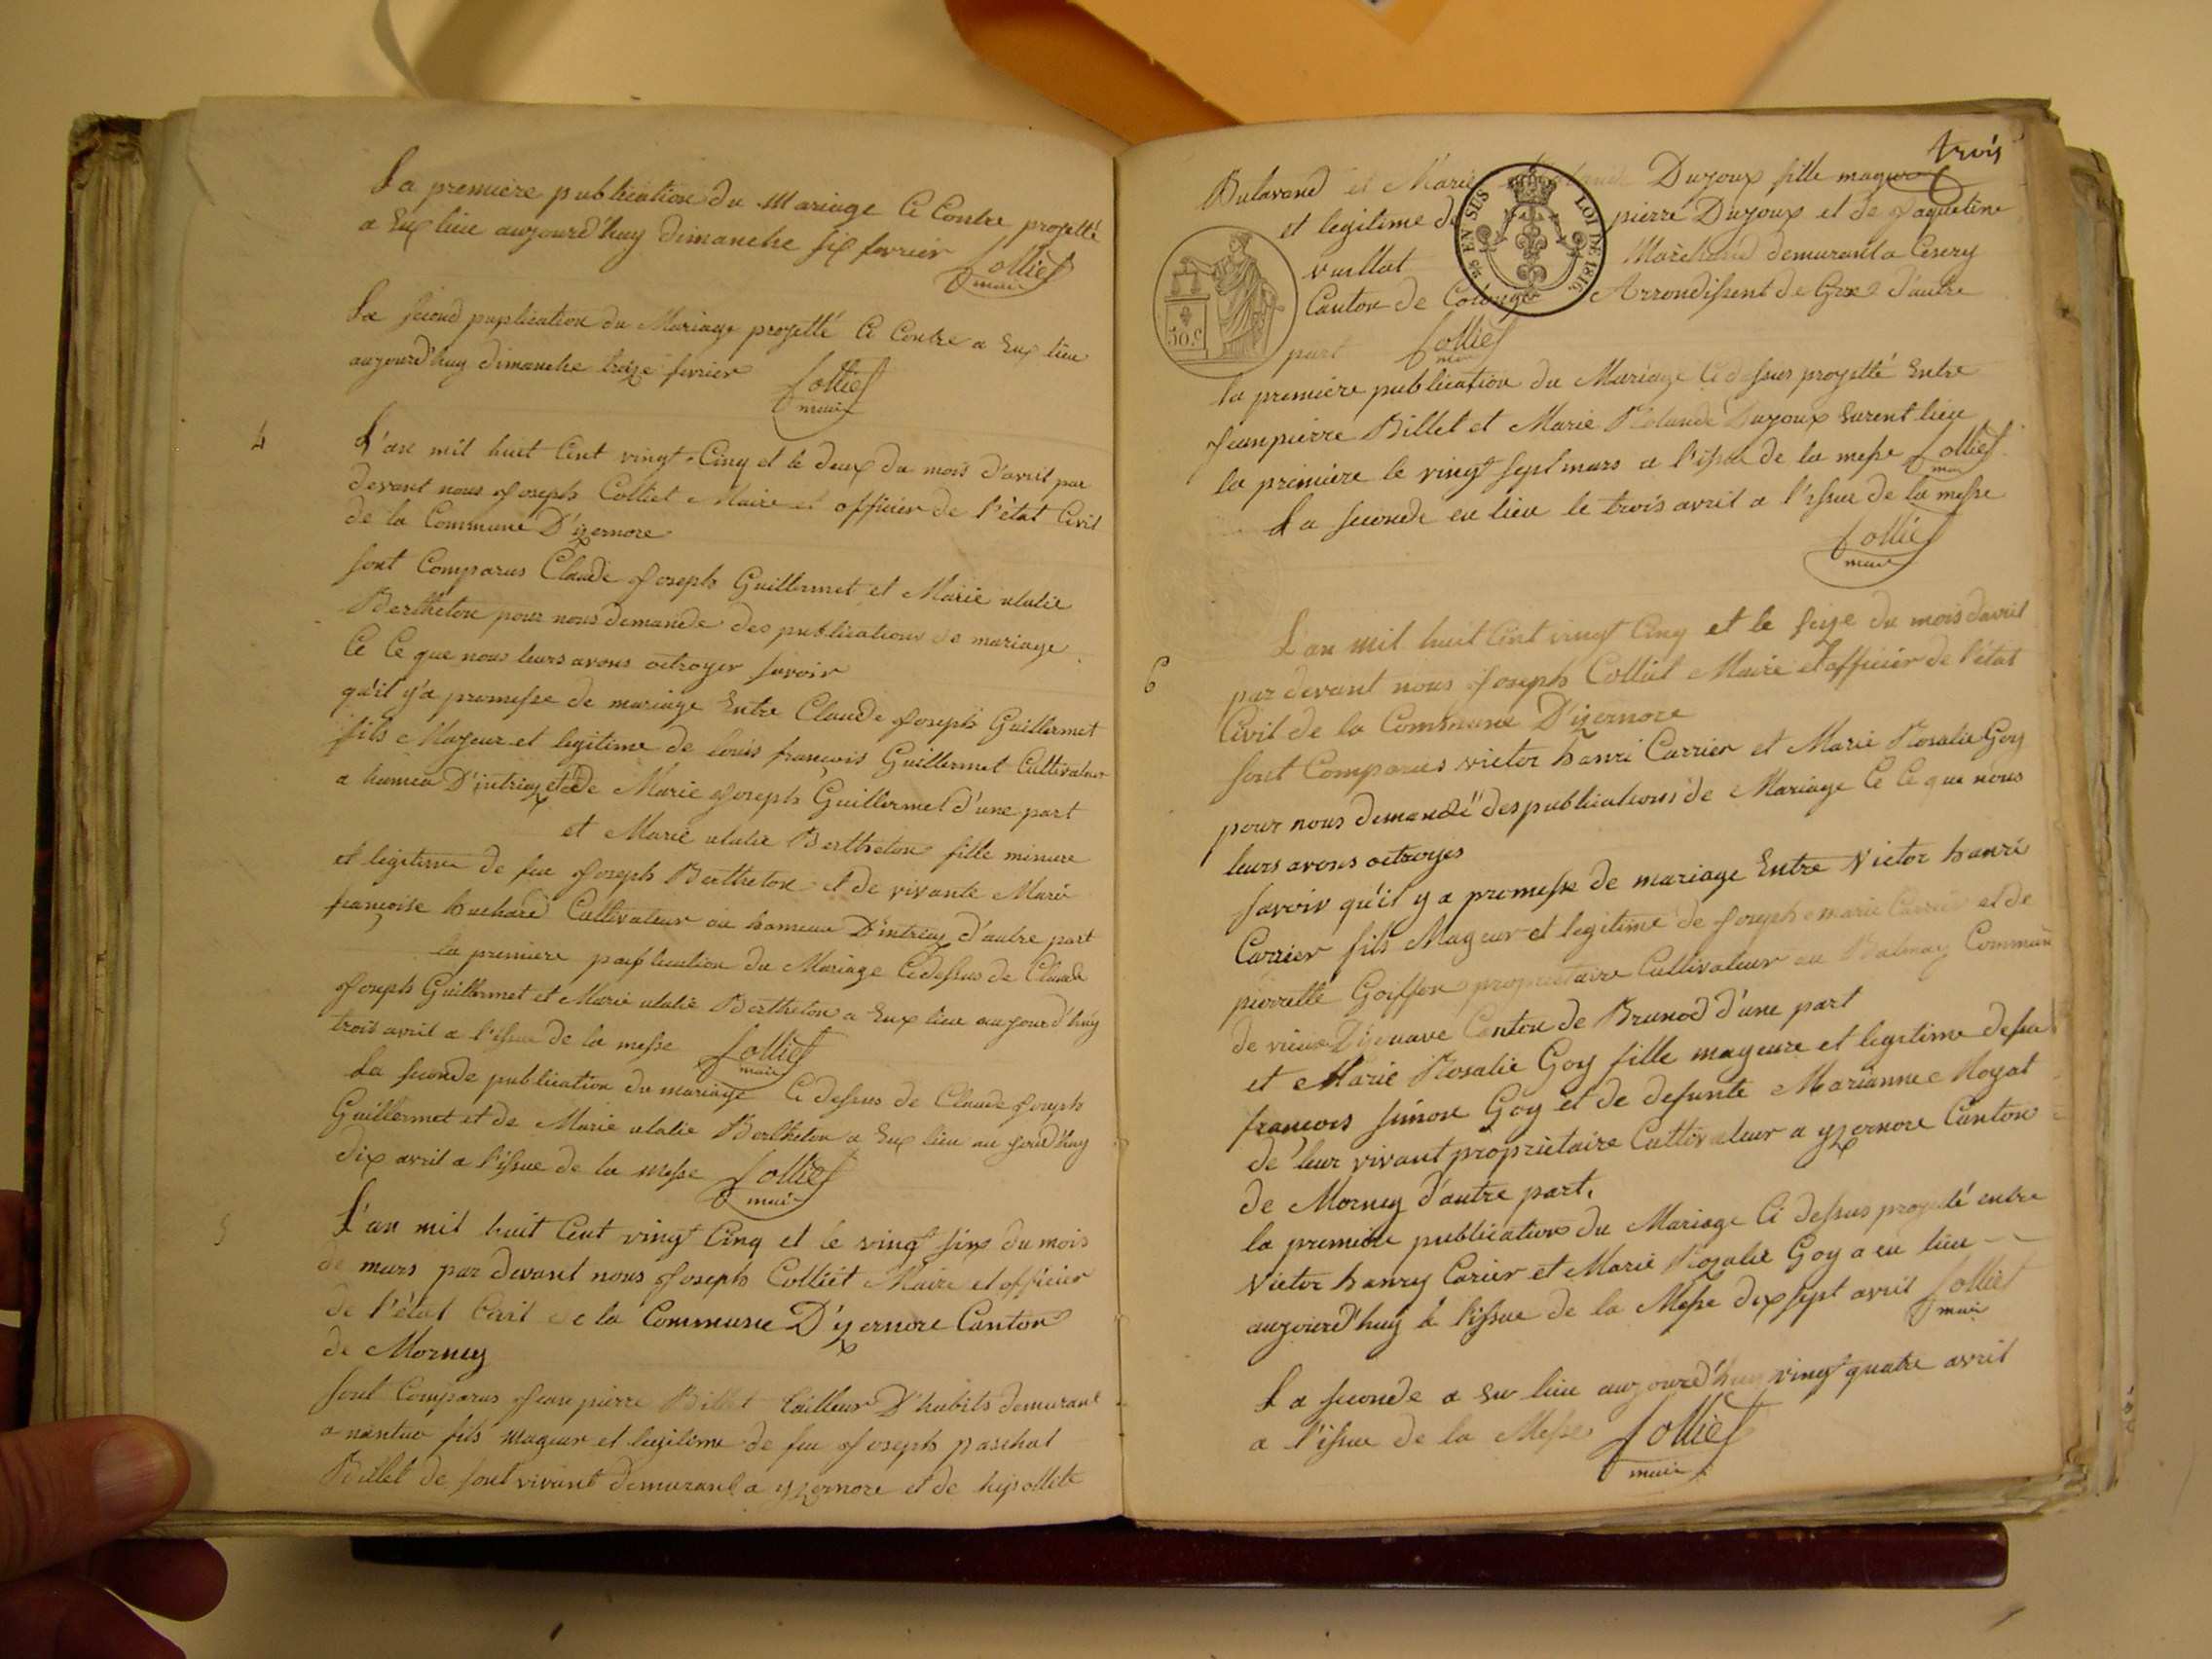 La première publication du Mariage Ci Contre projetté
a Eux lieu aujourd'huy dimanche six fevrier Colliet
maire
La second puplication du Mariage projetté Ci Contre a Eux lieu
aujourd'huy dimanche treize fevrier Colliet
maire
4
L'an mil huit Cent vingt-Cinq et le deux du mois d'avril par
devant nous Joseph Colliet Maire et officier de l'état Civil
de la Commune D'izernore
sont Comparus Claude Joseph Guillermet et Marie ulalie
Bertheton pour nous demande des publications de mariage
Ce Ce que nous leurs avons octroyer savoir
qu'il y'a promesse de mariage Entre Claude Joseph Guillermet
fils Majeur et legitime de louis francois Guillermet Cultivateur
a hamea D'intriaz et de Marie Joseph Guillermet d'une part
et Marie ulalie Bertheton fille minure
et legitime de feu Joseph Bertheton et de vivante Marie
francoise huchard Cultivateur au hameau D'intriaz d'autre part
la premiere publication du Mariage Ci dessus de Claude
Joseph Guillermet et Marie ulalie Bertheton a Eux lieu aujourd'huy
trois avril a l'issue de la messe Colliet
maire
La seconde publication du mariage Ci dessus de Claude Joseph
Guillermet et de Marie ulalie Bertheton a Eux lieu au jourd'huy
dix avril a l'issue de la messe Colliet
maire
5
L'an mil huit Cent vingt Cinq et le vingt six du mois
de mars par devant nous Joseph Colliet Maire et officier
de l'état Civil de la Commune D'izernore Canton
de Morney
sont Comparus Jean pierre Billet tailleur D'habits demurant
a nantua fils mageur et legitime de feu Joseph paschal
Billet de sont vivant demurant a yzernore et de hipollite
trois
Balavand et Marie Dujoux fille mageur
et legitime de pierre Dujoux et de Jaqueline
vuillat Marchand demurant a Cesery
Canton de Colonge Arrondissent de Gex d'autre
part Colliet
maire
EN SUS
LOI DE 1816.
50.c
la premiere publication du Mariage Ci dessus projetté Entre
Jean pierre Billet et Marie Dujoux Eurent lieu
la première le vingt sept mars a l'issue de la messe Colliet
maire
La seconde eu lieu le trois avril a l'issue de la messe
Colliet
maire
6
L'an mil huit Cent vingt Cinq et le seize du mois d'avril
par devant nous Joseph Colliet Maire et officier de l'état
Civil de la Commune D'izernore
sont Comparus victor hanri Carrier et Marie Rosalie Goy
pour nous demandé des publications de Mariage Ce Ce que nous
leurs avons octroyes
savoir qu'il y a promesse de mariage Entre Victor hanri
Carrier fils Mageur et legitime de Joseph marie Carrier et de
pierrette Goiffon proprietaire Cultivateur au Balmay Commune
de vieux D'izenave Canton de Brunod d'une part
et Marie Rosalie Goy fille mageure et legitime defeu
francois simon Goy et de defunte Marianne Moyat
de leur vivant proprietaire Cultivateur a yzernore Canton
de Morney d'autre part.
la premiere publication du Mariage Ci dessus projetté entre
Victor hanry Carier et Marie Rozalie Goy a eu lieu
aujourd'huy a l'issue de la Messe dix sept avril Colliet
maire
La seconde a Eu lieu aujourd'huy vingt quatre avril
a l'issue de la Messe Colliet
maire